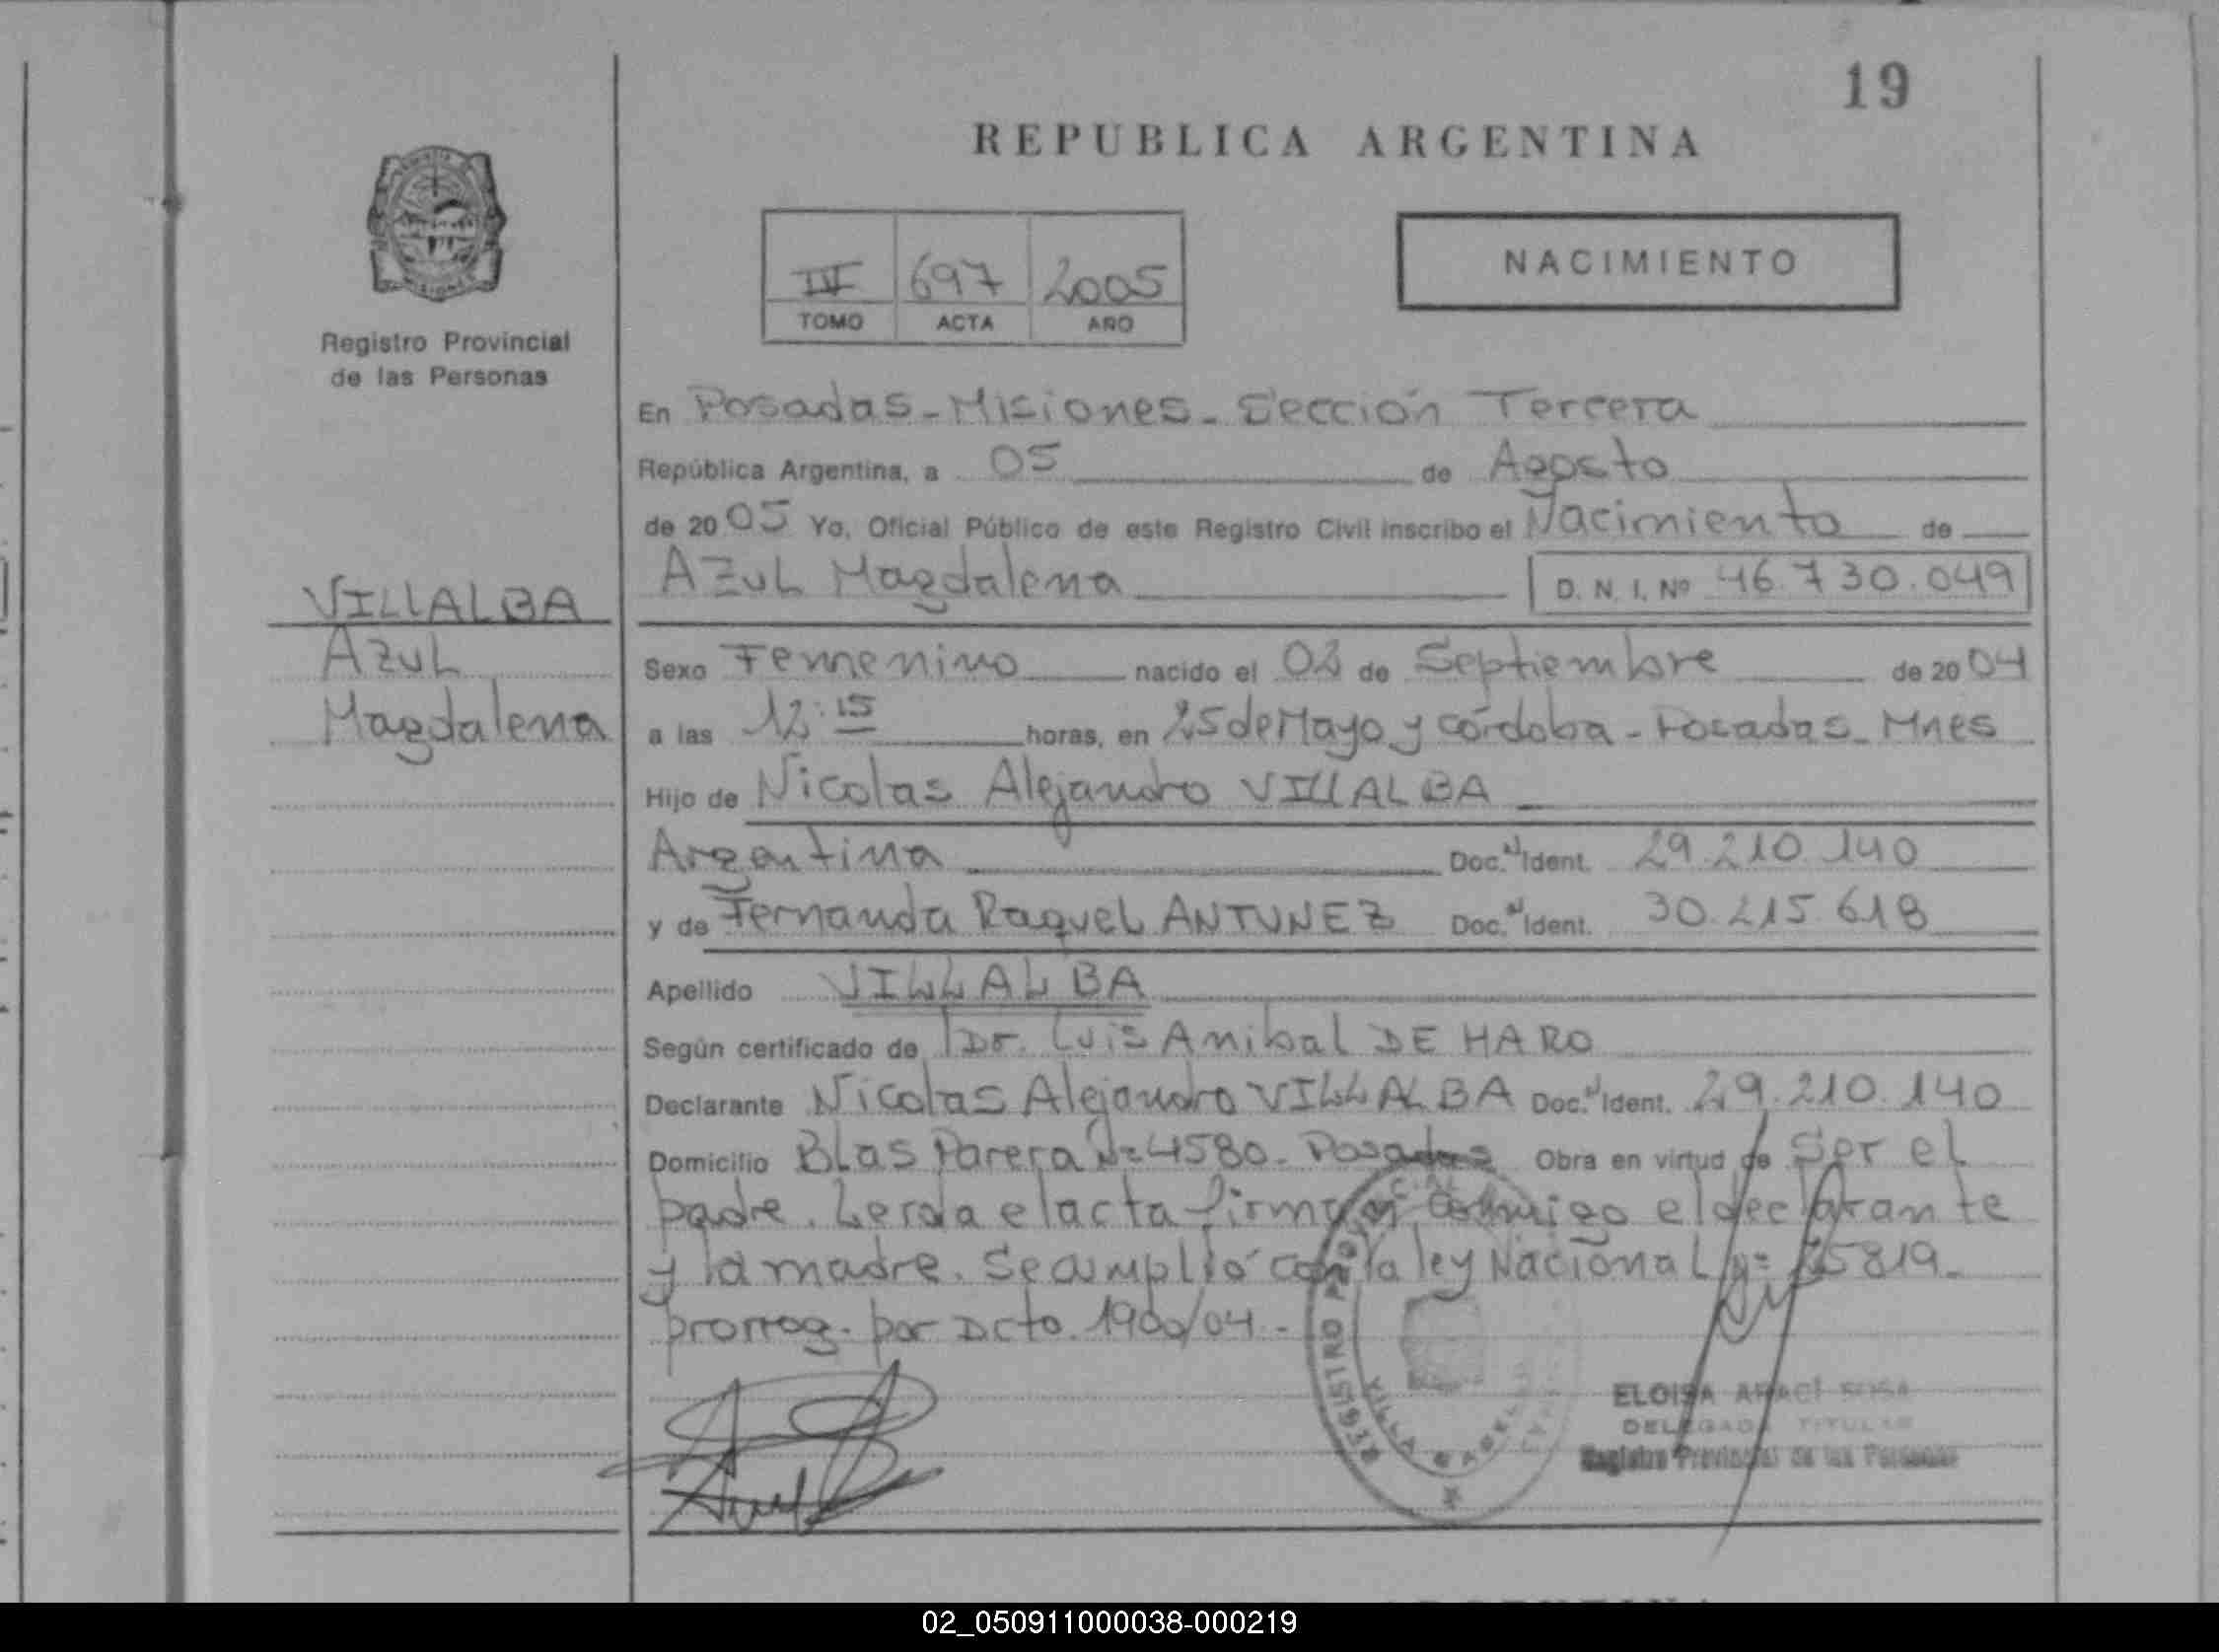 19
REPUBLICA ARGENTINA
IV 697 2005
TOMO ACTA AÑO
NACIMIENTO
Registro Provincial
de las Personas
En Posadas-Misiones-Sección Tercera
República Argentina, a 05 de Agosto
de 2005 Yo, Oficial Público de este Registro Civil inscribo el Nacimiento de
AZUL Magdalena D. N. I. Nº 46.730.049
VILLALBA
AZUL
Magdalena
Sexo Femenino nacido el 02 de Septiembre de 2004
a las 12:15 horas, en 25 de Mayo y córdoba - Posadas - Mnes
Hijo de Nicolas Alejandro VILLALBA
Argentina Doc. Ident. 29.210.140
y de Fernanda Raquel ANTUNEZ Doc. Ident. 30.215.618
Apellido VILLALBA
Según certificado de Dr. Luis Anibal DE HARO
Declarante Nicolas Alejandro VILLALBA Doc. Ident. 29.210.140
Domicilio Blas Parera Nº 4580 - Posadas Obra en virtud de Ser el
padre. Leida el acta firman conmigo el declarante
y la madre. Se amplió con la ley Nacional Nº 25819-
prorrog. por Dcto. 1900/04.-
REGISTRO PROVINCIAL
VILLA
ELOISA ARACI SOSA
DELEGADA TITULAR
Registro Provincial de las Personas
02_050911000038-000219